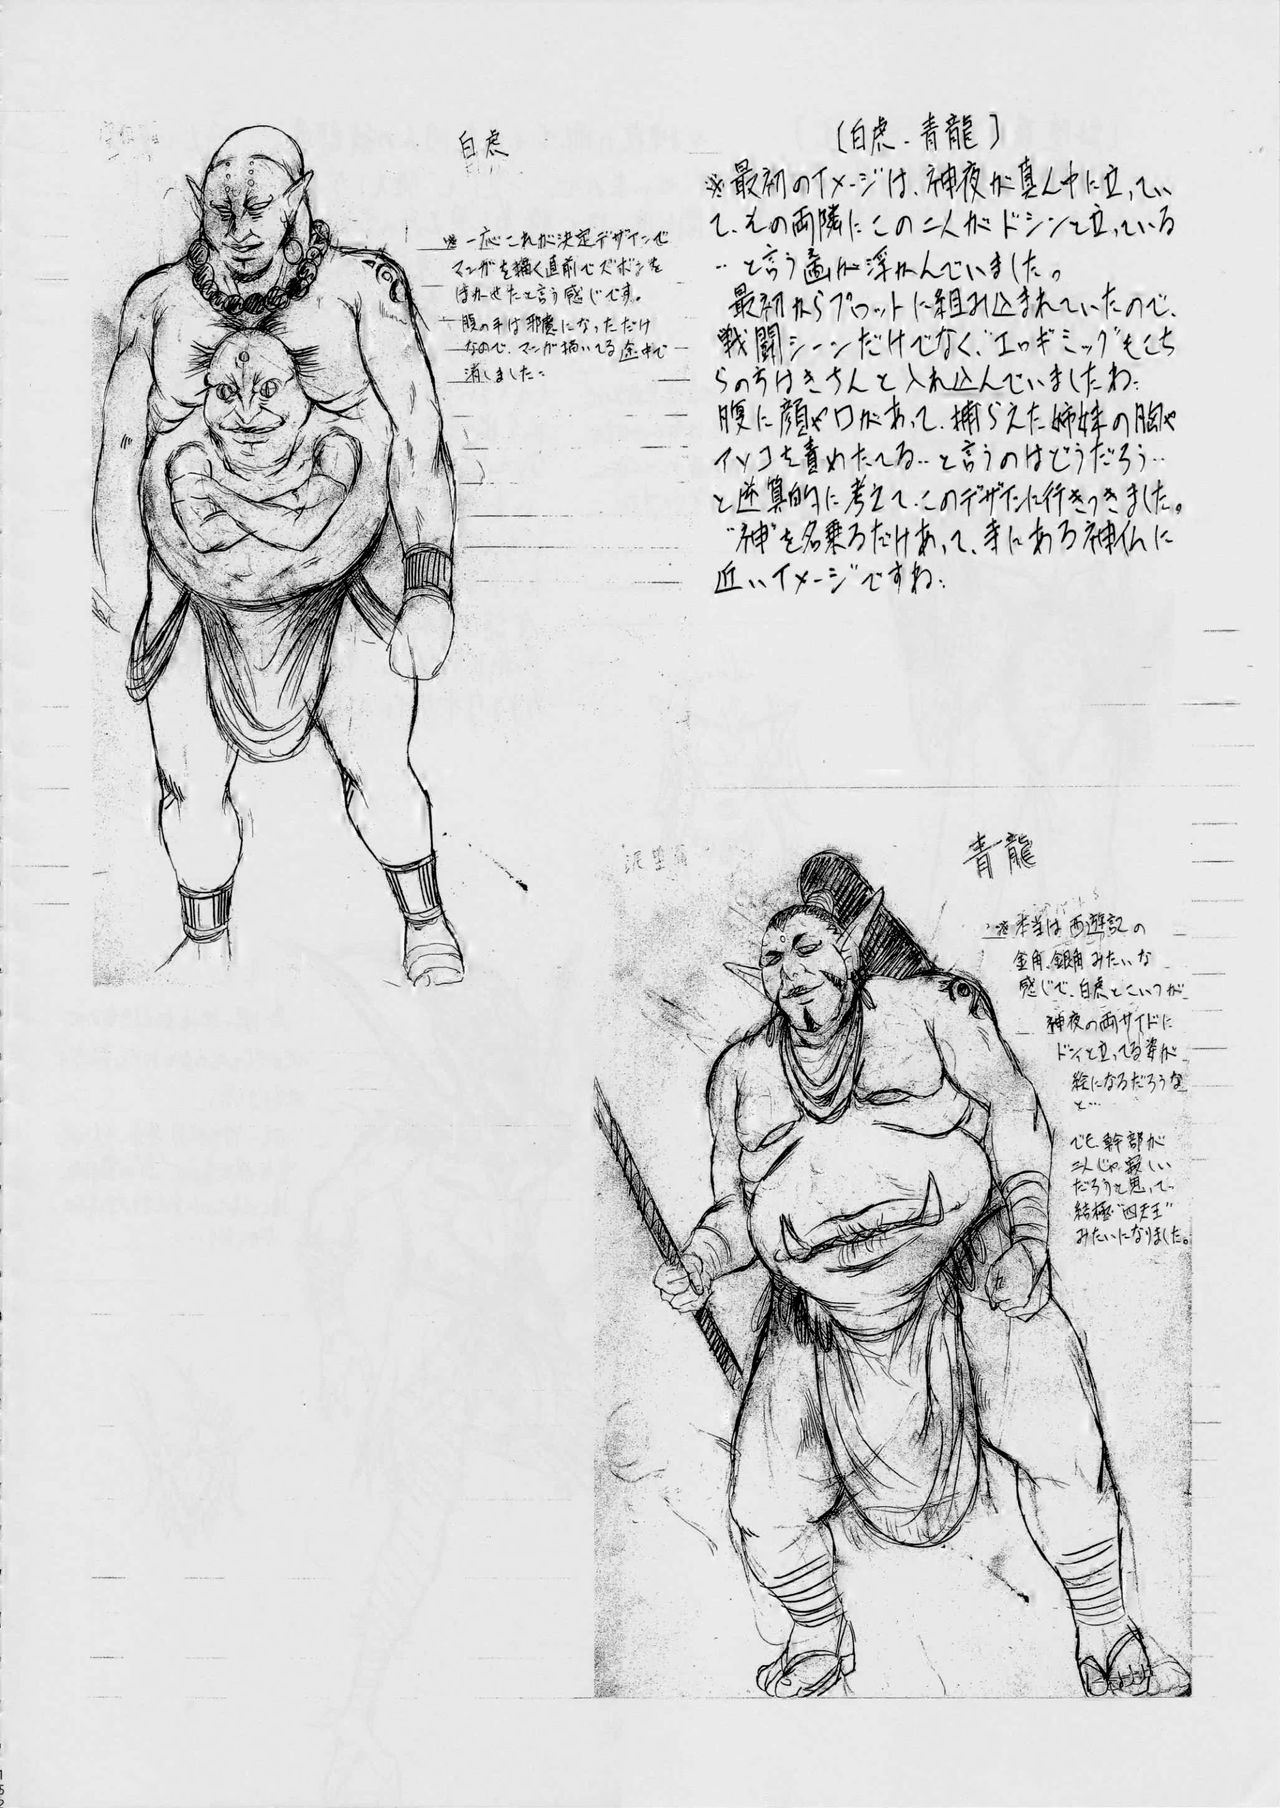 白虎
※一応これが決定デザインで
マンガを描く直前でズボンを
はかせたと言う感じです。
腹の手は邪魔になっただけ
なので、マンガ描いてる途中で
消しました。
〔白虎・青龍〕
※最初のイメージは、神夜が真ん中に立ってい
て、その両隣にこの二人がドシンと立っている
…と言う画が浮かんでいました。
最初からプロットに組み込まれていたので、
戦闘シーンだけでなく、"エロギミック"もこち
らの方はきちんと入れ込んでいましたね。
腹に顔や口があって、捕らえた姉妹の胸や
アソコを責めたてる…と言うのはどうだろう…
と逆算的に考えて、このデザインに行きつきました。
"神"を名乗るだけあって、寺にある神仏に
近いイメージですね。
青龍
※本当は西遊記の
金角、銀角みたいな
感じで、白虎とこいつが
神夜の両サイドに
ドンと立ってる姿が
絵になるだろうな
と…
でも、幹部が
二人じゃ寂しい
だろうと思って…
結極"四天王"
みたいになりました。
152